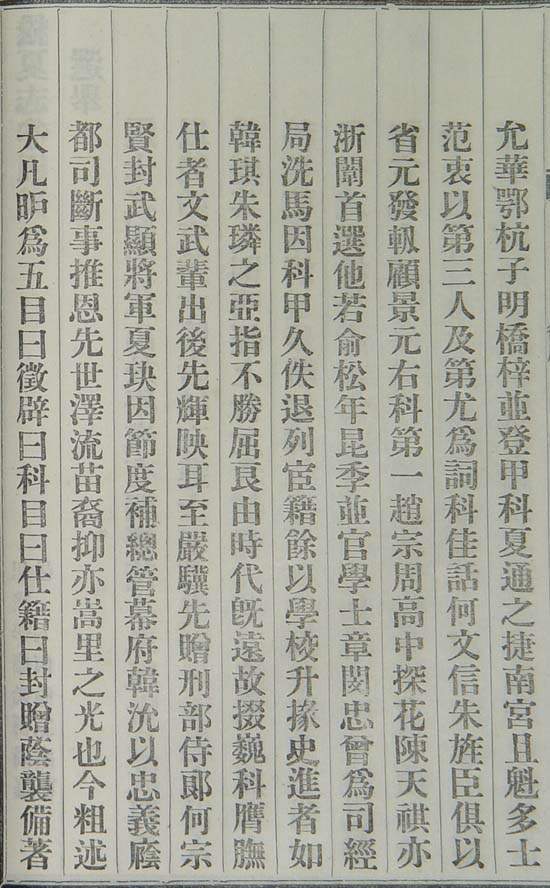 允華鄂杭子明橋梓並登甲科夏通之捷南宮且魁多士
范衷以第三人及第尤爲詞科佳話何文信朱旌臣俱以
省元發軔顧景元右科第一趙宗周高中探花陳天祺亦
浙闈首選他若俞松年昆季並官學士章閔忠曾爲司經
局洗馬因科甲久佚退列宦籍餘以學校升掾史進者如
韓琪朱璘之亞指不勝屈艮由時代旣遠故掇巍科膺膴
仕者文武輩出後先輝映耳至嚴驥先贈刑部侍郞何宗
賢封武顯將軍夏玦因節度補總管幕府韓沇以忠義廕
都司斷事推恩先世澤流苗裔抑亦嵩里之光也今粗述
大凡昈爲五目曰徵辟曰科目曰仕籍曰封贈蔭襲備著